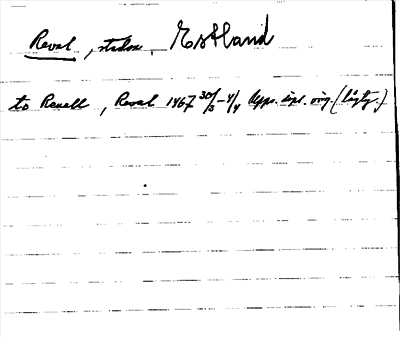 Reval, staden, Estland
to Revell, Reval 1467 30/3–4/4 Uppr. dipl. orig. (lågty.)